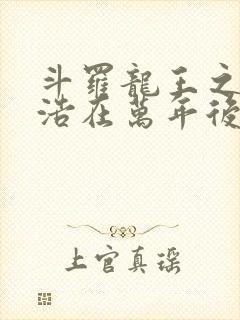 斗羅龍王之
浩在萬年後
上官真瑤